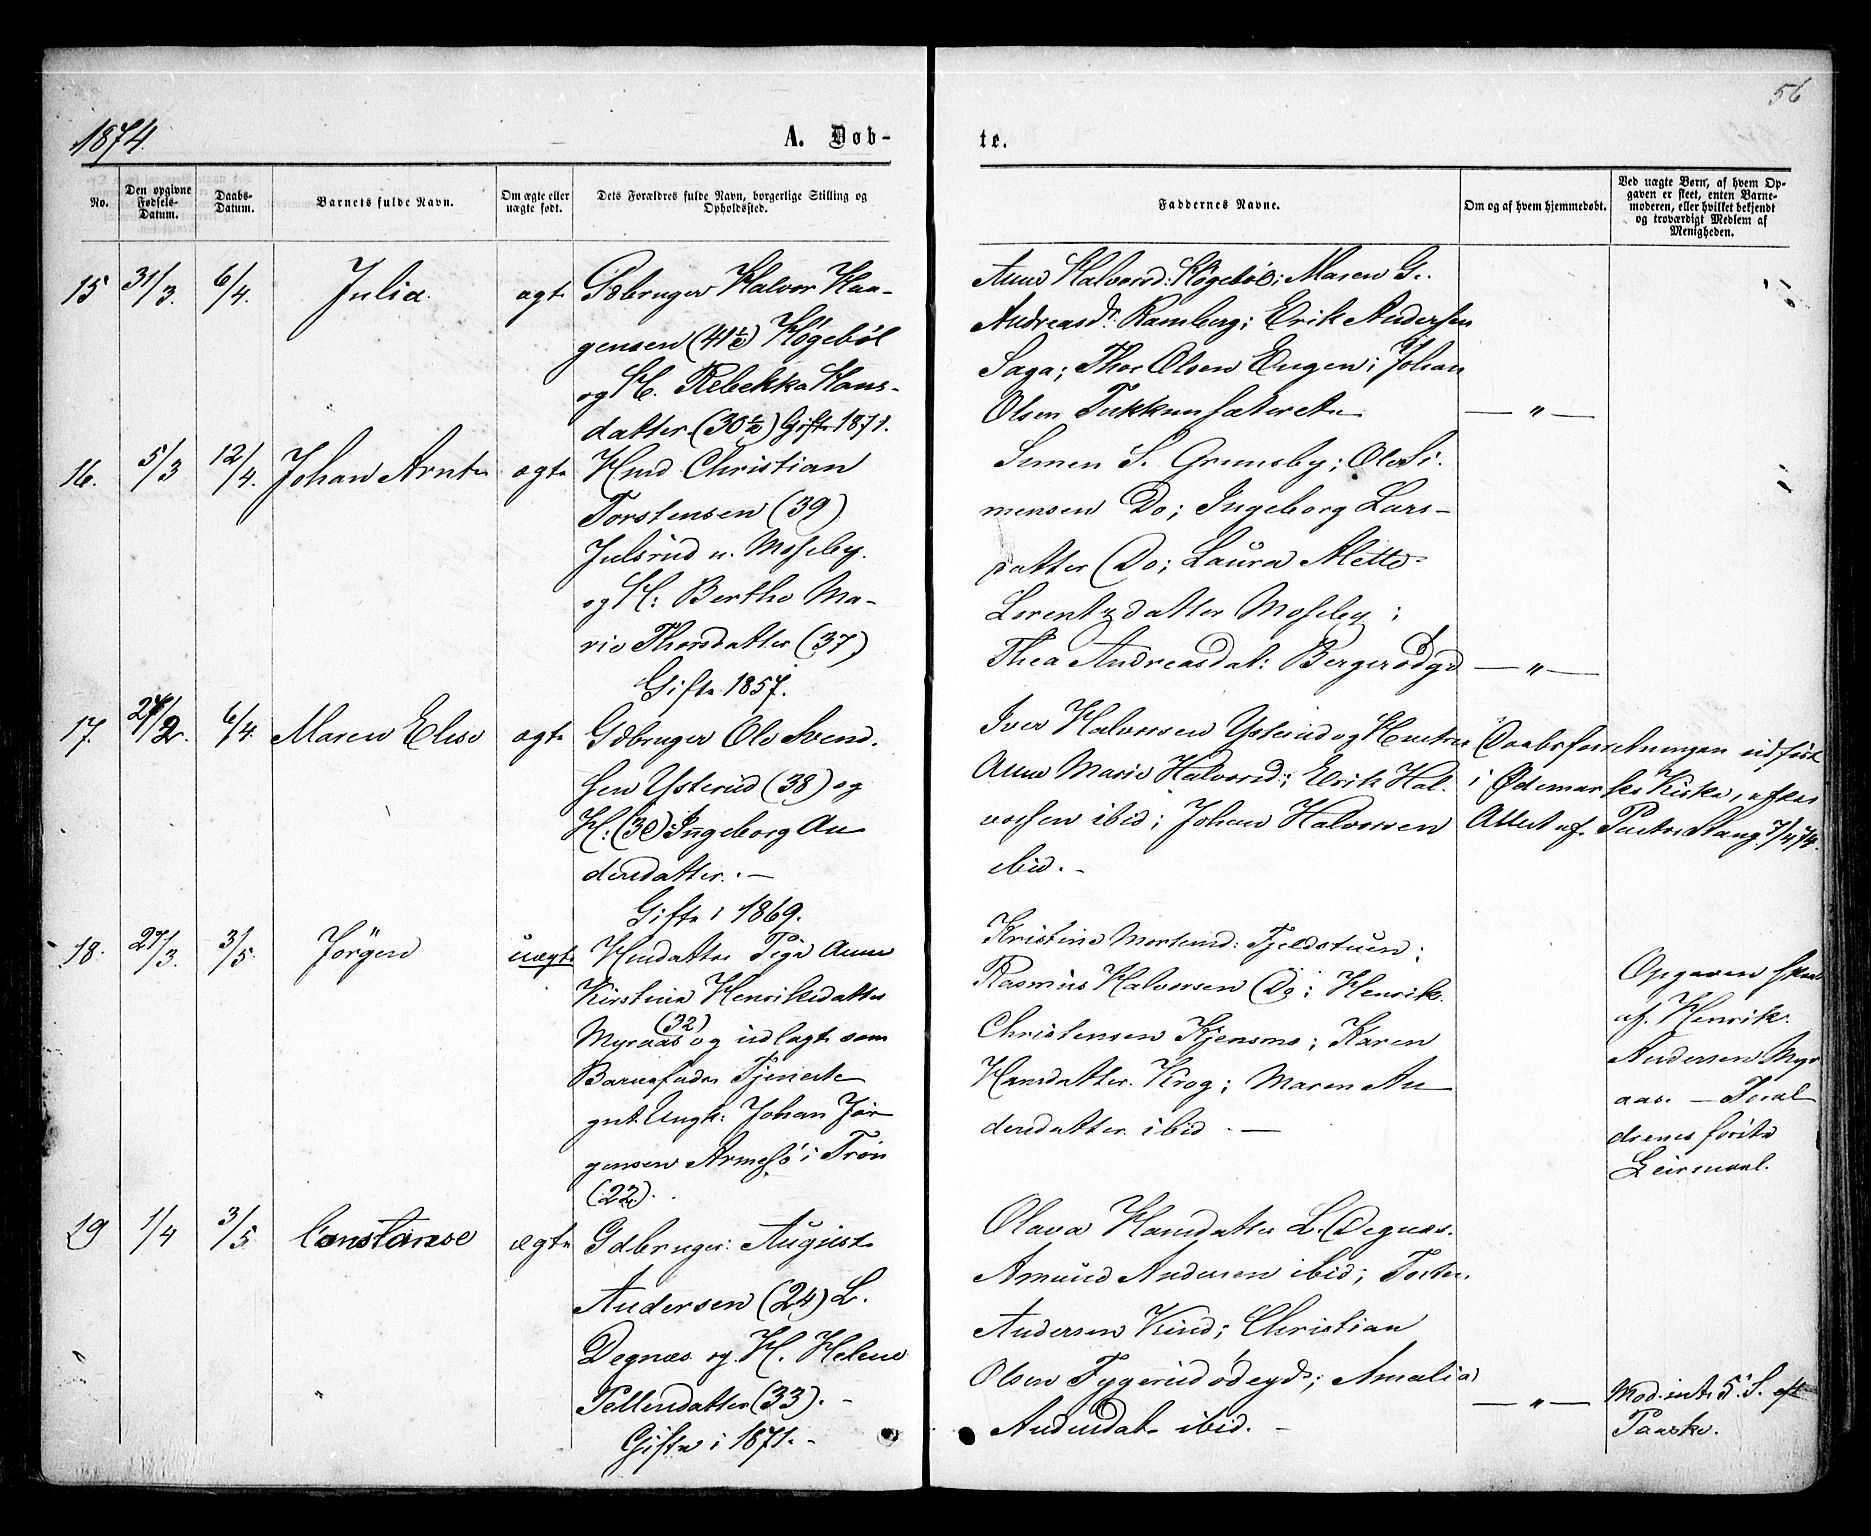 56
1874.
A. Døb-
te.
No.
Den opgivne
Fødsels-
Datum.
Daabs-
Datum.
Barnets fulde Navn.
Om ægte eller
uægte født.
Dets Forældres fulde Navn, borgerlige Stilling og
Opholdssted.
Faddernes Navne.
Om og af hvem hjemmedøbt.
Ved uægte Børn, af hvem Op-
gaven er skeet, enten Barne-
moderen, eller hvilket bekjendt
og troværdigt Medlem af
Menigheden.
15 31/3. 6/4. Julia. ægte
Gdbruger Halvor Haa-
gensen (41½) Køgebøl
og H. Rebekka Hans-
datter (30½) Gifte 1871.
Anne Halvorsd: Køgebøl; Maren G.
Andreasd. Ramberg; Erik Andersen
Saga; Thor Olsen Engen; Johan
Olsen Tukkunsæteret
— " —
16. 5/3 12/4. Johan Arnt ægte
Hmd Christian
Torstensen (39)
Julsrud u. Moseby.
og H: Berthe Ma-
rie Thorsdatter (37)
Gifte 1857.
Simen S. Grimsby; Ole Si-
mensen Do; Ingeborg Lars-
datter Do; Laura Mette
Lorentzdatter Moseby;
Thea Andreasdat: Bergerødgd
— " —
17. 24/2. 6/4. Maren Elise ægte
Gdbruger Ole Svend-
sen Ysterud (38) og
H: (30) Ingeborg An
dersdatter. —
Gifte i 1869.
Iver Halvorsen Ysterud og Hustru
Anne Marie Halvorsd; Erik Hal-
vorsen ibid; Johan Halvorsen
ibid. -
Daabsforretningen udført
i Ødemarks Kirke, efter
Attest af Pastor Stang 7/4 74.
18. 27/3. 3/5. Jørgen uægte
Hmdatter Pige Anne
Kirstine Henriksdatter
(32)
Myraas og udlagt som
Barnefader Tjeneste
gut Ungk: Johan Jør
gensen Armesø i Trøn
(22).
Kristine Mortensd: Fjeldstuen;
Rasmus Halvorsen Do; Henrik
Christensen Kjensmo; Karen
Hansdatter Krog; Maren An
dersdatter ibid. —
Opgaven skeet
af Henrik
Andersen Myr
aas. — Foræl
drenes første
Leiermaal.
19 1/4 3/5. Constanse ægte
Gdbruger August
Andersen (24) L.
Degnæs og H. Helene
Pellersdatter (33). -
Gifte i 1871. -
Olava Hansdatter L. Degnæs.
Amund Andersen ibid; Tosten
Andersen Kind; Christian
Olsen Tygerud ødegd; Amalia
Andersdat. ibid. -
— " —
Mod. int. 5. S. eft
Paaske.